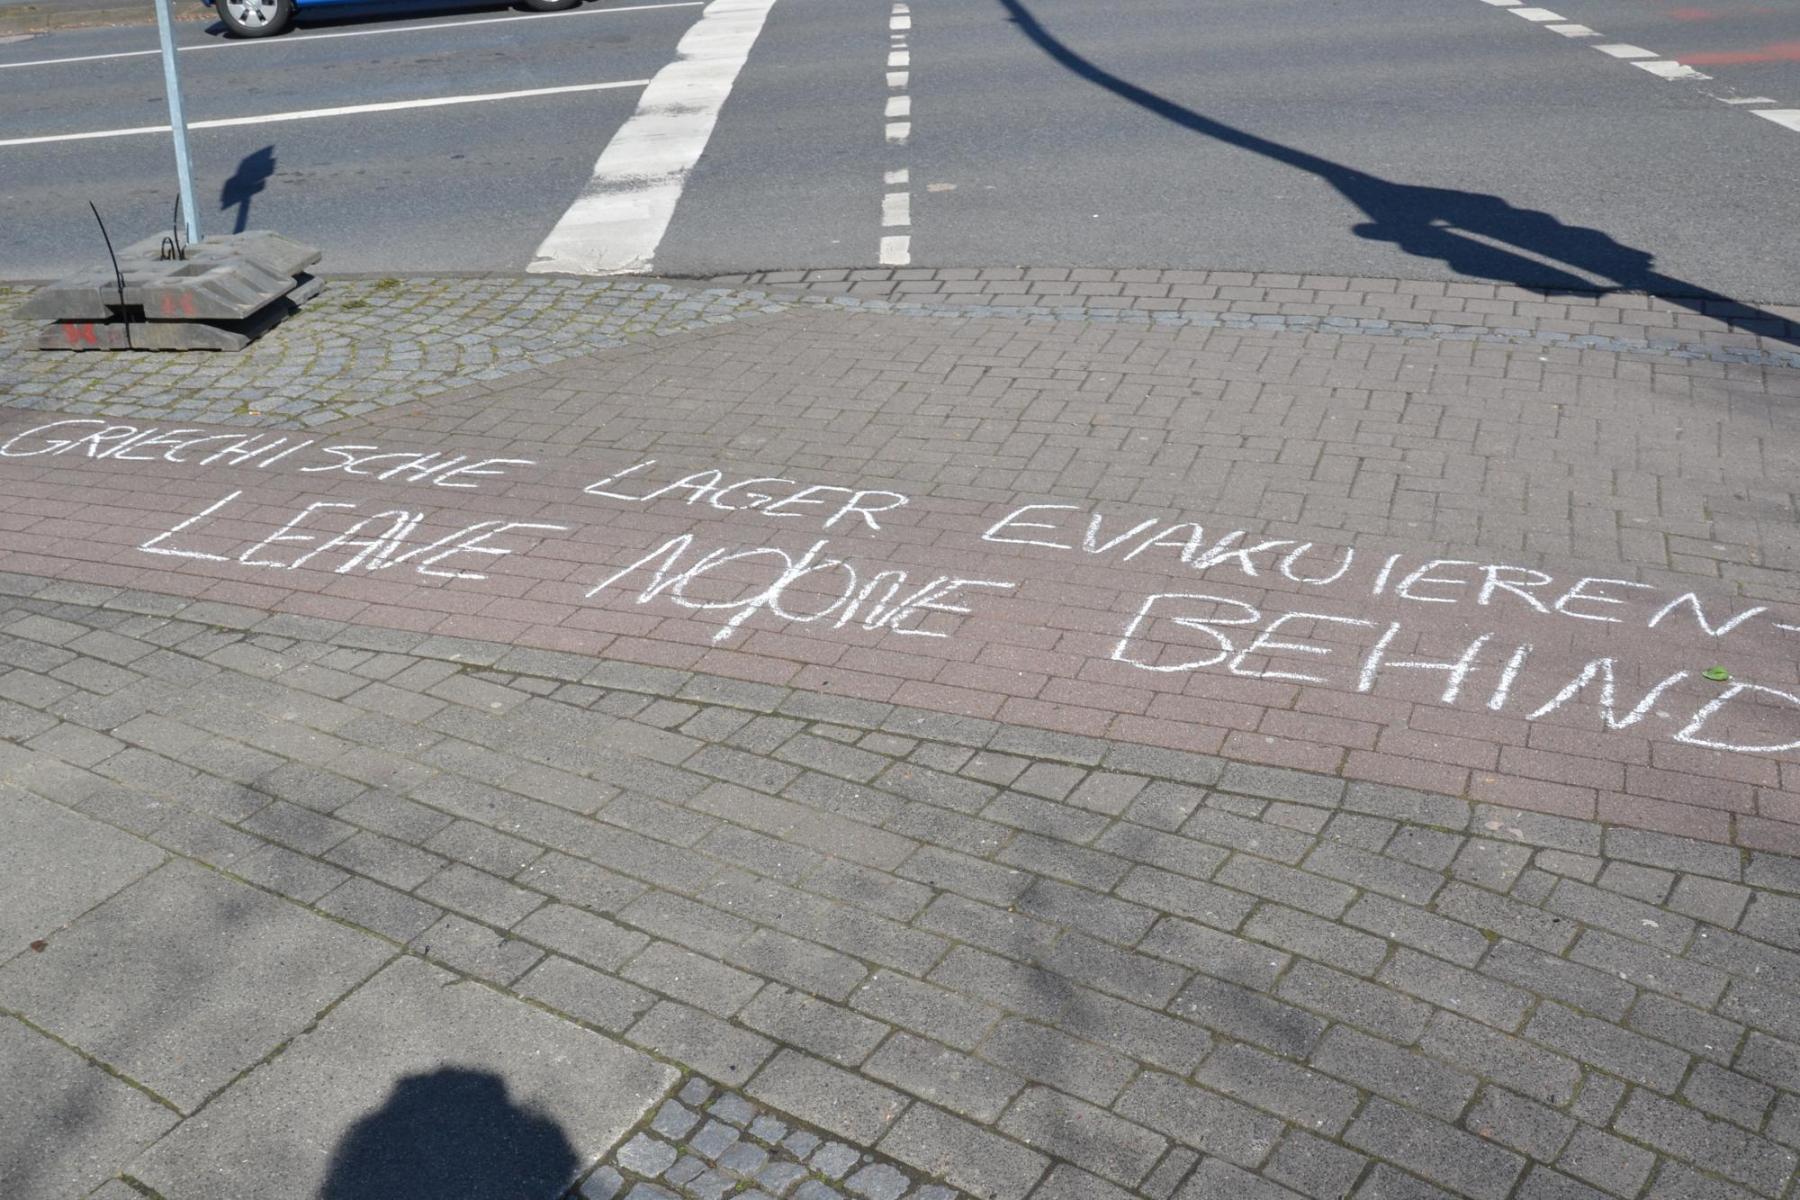 GRIECHISCHE LAGER EVAKUIEREN-
LEAVE NO/ONE BEHIND